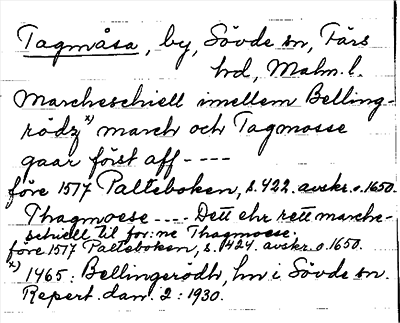 Tagmåsa, by, Sövde sn, Färs
hd, Malm. l.
Marcheschiell imellem Belling-
rödz x) march och Tagmosse
gaar först aff ----
före 1517 Palteboken, s. 422. avskr. o. 1650.
Thagmoese ---- Dett ehr rett marche-
schiell til for:ne Thagmoese.
före 1517 Palteboken, s. 424. avskr. o. 1650.
x) 1465: Bellingerödh, hm i Sövde sn.
Repert. dan. 2: 1930.